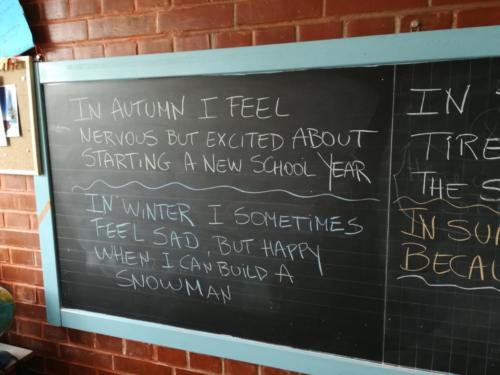 IN AUTUMN I FEEL
NERVOUS BUT EXCITED ABOUT
STARTING A NEW SCHOOL YEAR
IN WINTER I SOMETIMES
FEEL SAD, BUT HAPPY
WHEN I CAN BUILD A
SNOWMAN
IN
TIRE
THE S
IN SU
BECAU